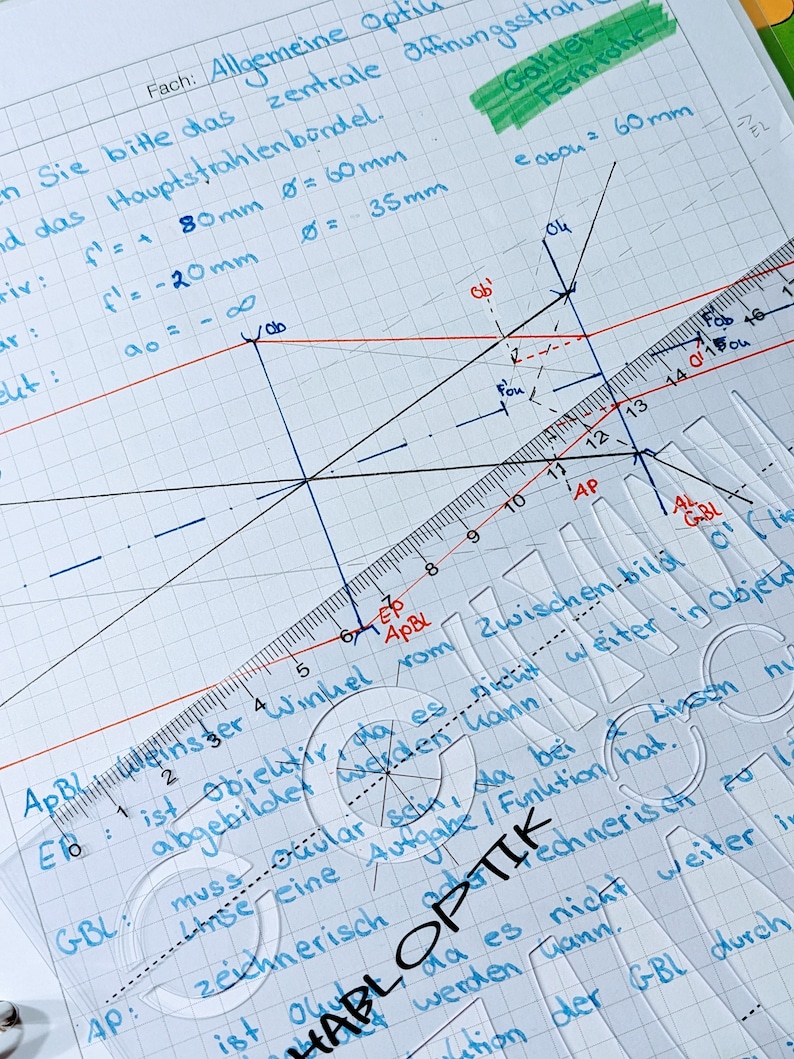 Fach: Allgemeine Optik
en Sie bitte das zentrale Öffnungsstrahlen
nd das Hauptstrahlenbündel.
Galilei-
Fernrohr
tiv: f' = + 80mm ø = 60mm eObOu = 60mm
ar: f' = -20mm ø = 35mm
ekt: ao = - ∞
=> EL
Ob
Ob'
Ou
F'ou
F'ob
Fou
O'
AP
AL
GBl
EP
ApBL
0 1 2 3 4 5 6 7 8 9 10 11 12 13 14 15 16 17
ApBL: kleinster Winkel vom Zwischenbild O' (lie
EP: ist Objektiv, da es nicht weiter in Objekt
abgebildet werden kann.
GBL: muss Okular sein, da bei 2 Linsen nu
Linse eine Aufgabe / Funktion hat.
AP: zeichnerisch oder rechnerisch zu lö
ist Okular, da es nicht weiter in
werden kann.
der GBL durch
HABLOPTIK